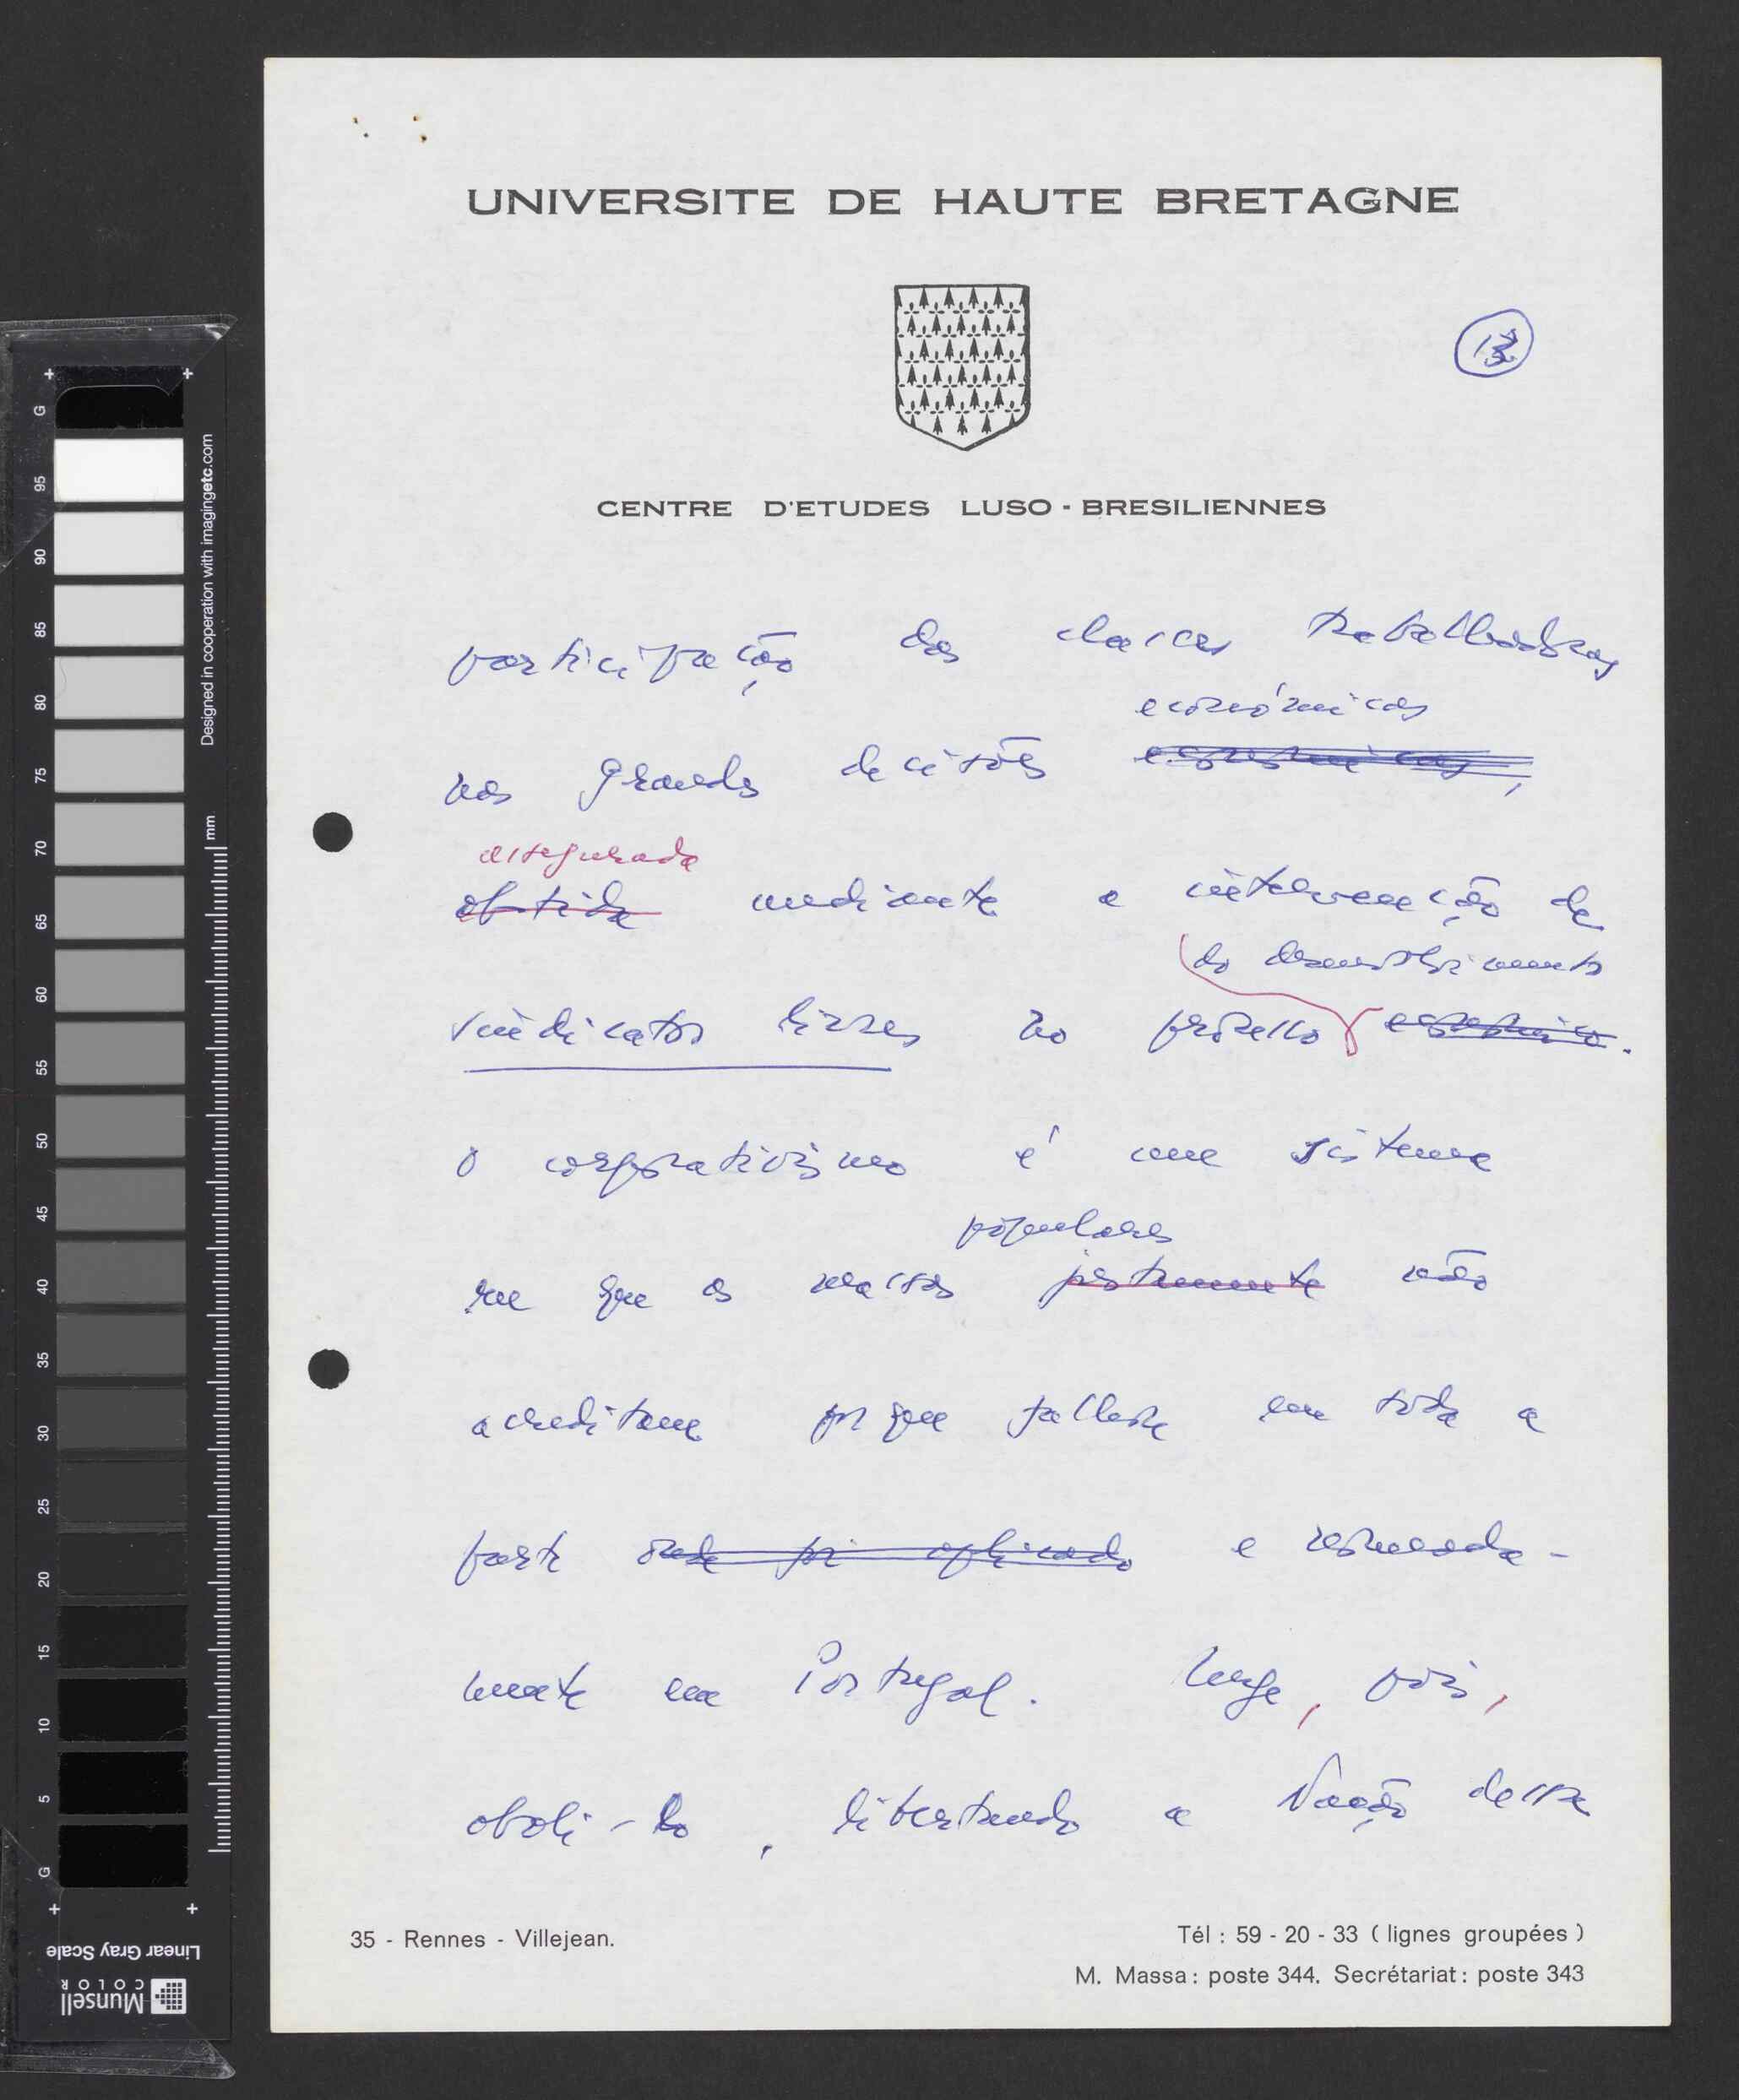 UNIVERSITE DE HAUTE BRETAGNE
CENTRE D'ETUDES LUSO - BRESILIENNES
participação das classes trabalhadoras
económicas
nas grandes decisões economicas,
assegurada
obtida mediante a intervenção de
do desenvolvimento
sindicatos livres no processo economico.
O corporativismo é um sistema
populares
em que as massas justamente não
acreditam porque falhou em toda a
parte onde foi aplicado e nomeada-
mente em Portugal. Urge, pois,
aboli-lo, libertando a Nação dessa
35 - Rennes - Villejean.
Tél : 59 - 20 - 33 ( lignes groupées )
M. Massa : poste 344. Secrétariat : poste 343
Designed in cooperation with imagingetc.com
mm
G
95
90
85
80
75
70
65
60
55
50
45
40
35
30
25
20
15
10
5
G
Linear Gray Scale
Munsell
COLOR